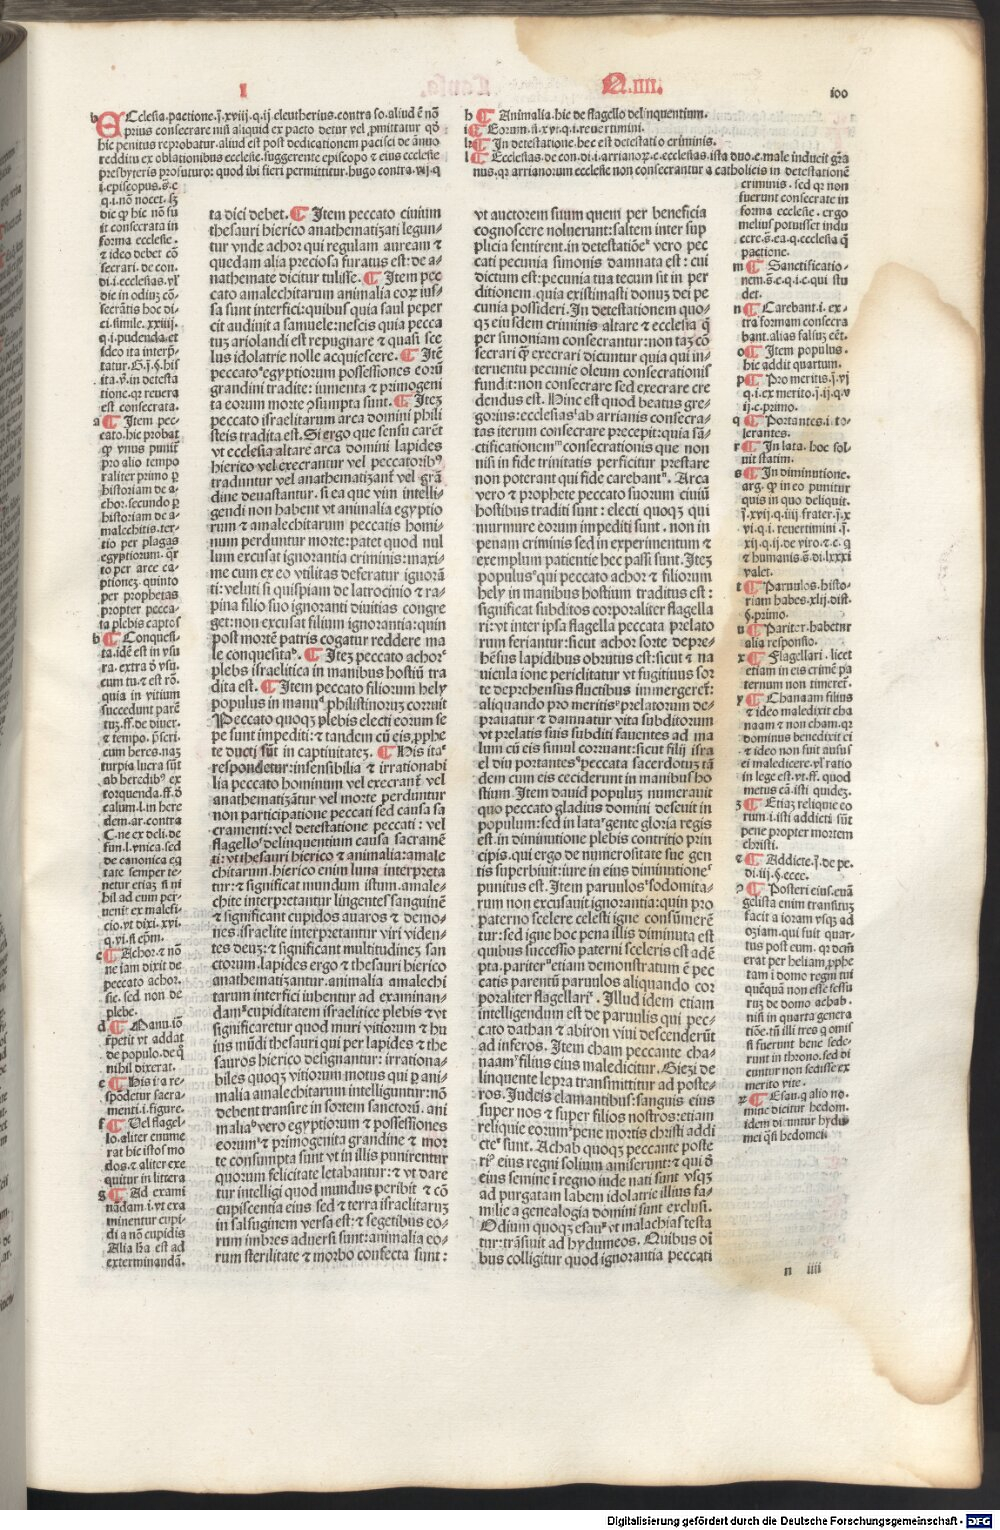 I
Q.IIII.
100
h EClesia.pactione.j̄.xviij.q.ij eleutherius.contra so.aliud ē nō
prius consecrare nisi aliquid ex pacto detur vel ꝓmittatur qd̕
hic penitus reprobatur.aliud est post dedicationem pacisci de ānuo
redditu ex oblationibus ecclesie.suggerente episcopo ⁊ eius ecclesie
presbyteris ꝓfuturo: quod ibi fieri permittitur.hugo contra.vij.q
i.episcopus.s̄.c
q.i.nō nocet.sꝫ
dic ꝙ hic nō fu
it consecrata in
forma ecclesie.
⁊ ideo debet cō
secrari.de con.
di.i.ecclesias.vl̕
dic in odiuꝫ cō-
secrātis hoc di-
ci.simile.xxiiij.
q.i.pudenda.et
ideo ita interp̄-
tatur.G.j̄.q̄.his
ita.v̄.in detesta
tione.qꝛ reuera
est consecrata.
a ¶ Item pec-
cato.hic probat
ꝙ vnus punit̄
pro alio tempo
raliter primo ꝑ
historiam de a-
chor.secundo ꝑ
historiam de a-
malechitis.ter-
tio per plagas
egyptiorum.q̄r
to per arce ca-
ptioneꝫ.quinto
per prophetas
propter pecca-
ta plebis captos
b ¶ Conquesi-
ta.idē est in vsu
ra.extra d̕ vsu.
cum tu.⁊ est rō.
quia in vitium
succedunt parē
tuꝫ.ff.de diuer.
⁊ tempo.p̄scri.
cum heres.naꝫ
turpia lucra sūt
ab heredibꝰ ex
torquenda.ff.d̕
calum.l.in here
dem.ar.contra
C.ne ex deli.de
fun.l.vnica.sed
de canonica eq̄
tate semper te-
netur etiaꝫ si ni
hil ad eum per-
uenit ex malefi-
cio.vt dixi.xvi.
q.vi.si ep̄m.
c ¶ Achor.⁊ nō
ne iam dixit de
peccato achor.
sic.sed non de
plebe.
d ¶ Manu.iō
r̄petit vt addat
de populo.de q̄
nihil dixerat.
e ¶ His ita re-
spōdetur sacra-
menti.i.figure.
f ¶ Uel flagel-
lo.aliter enume
rat hic istos mo
dos.⁊ aliter exe
quitur in littera
g ¶ Ad exami
nādam.i.vt exa
minentur cupi-
di a nō cupidis
Alia lr̄a est ad
exterminandā.
ta dici debet. ¶ Item peccato ciuium
thesauri hierico anathematizati legun-
tur vnde achor qui regulam auream ⁊
quedam alia preciosa furatus est: de a-
nathemate dicitur tulisse. ¶ Item pec
cato amalechitarum animalia coꝝ ius-
sa sunt interfici: quibus quia saul peper
cit audiuit a samuele: nescis quia pecca
tuꝫ ariolandi est repugnare ⁊ quasi sce
lus idolatrie nolle acquiescere. ¶ Itē
peccato egyptiorum possessiones eorū
grandini tradite: iumenta ⁊ primogeni
ta eorum morte ꝯsumpta sunt. ¶ Iteꝫ
peccato israelitarum arca domini phili
steis tradita est. Si ergo que sensu carēt
vt ecclesia altare arca domini lapides
hierico vel execrantur vel peccatoribꝰ
traduntur vel anathematizant̄ vel grā
dine deuastantur.si ea que vim intelli-
gendi non habent vt animalia egyptio
rum ⁊ amalechitarum peccatis homi-
num perduntur morte: patet quod nul
lum excusat ignorantia criminis: maxi-
me cum ex eo vtilitas deferatur ignorā
ti: veluti si quispiam de latrocinio ⁊ ra-
pina filio suo ignoranti diuitias congre
get: non excusat filium ignorantia: quin
post mortē patris cogatur reddere ma
le conquesitaᵇ. ¶ Iteꝫ peccato achorᶜ
plebs israelitica in manibus hostiū tra
dita est. ¶ Item peccato filiorum hely
populus in manuᵈ philistinoruꝫ corruit
Peccato quoqꝫ plebis electi eorum se
pe sunt impediti: ⁊ tandem cū eis ꝓphe
te ducti sūt in captiuitateꝫ. ¶ His itaᵉ
respondetur: insensibilia ⁊ irrationabi
lia peccato hominum vel execrant̄ vel
anathematizātur vel morte perduntur
non participatione peccati sed causa sa
cramenti: vel detestatione peccati: vel
flagelloᶠ delinquentium causa sacramē
ti: vt thesauri hierico ⁊ animalia: amale
chitarum.hierico enim luna interpreta
tur: ⁊ significat mundum istum.amale-
chite interpretantur lingentes sanguinē
⁊ significant cupidos auaros ⁊ demo-
nes.israelite interpretantur viri viden-
tes deuꝫ: ⁊ significant multitudineꝫ san
ctorum.lapides ergo ⁊ thesauri hierico
anathematizantur.animalia amalechi
tarum interfici iubentur ad examinan-
damᵍ cupiditatem israelitice plebis ⁊ vt
significaretur quod muri vitiorum ⁊ hu
ius mūdi thesauri qui per lapides ⁊ the
sauros hierico designantur: irrationa-
biles quoqꝫ vitiorum motus qui ꝑ ani-
malia amalechitarum intelliguntur: nō
debent transire in sortem sanctorū.ani
maliaʰ vero egyptiorum ⁊ possessiones
eorumⁱ ⁊ primogenita grandine ⁊ mor
te consumpta sunt vt in illis punirentur
quorum felicitate letabantur: ⁊ vt dare
tur intelligi quod mundus peribit ⁊ cō
cupiscentia eius sed ⁊ terra israelitaruꝫ
in salsuginem versa est: ⁊ segetibus eo-
rum imbres aduersi sunt: animalia eo-
rum sterilitate ⁊ morbo confecta sunt:
h ¶ Animalia.hic de flagello delinquentium.
i ¶ Eorum.s̄.xvi.q.i.reuertimini.
k ¶ In detestatione.hec est detestatio criminis.
l ¶ Ecclesias.de con.di.i.arrianoꝝ.c.ecclesias.ista duo.c.male inducit gr̄a
nus.qꝛ arrianorum ecclesie non consecrantur a catholicis in detestationē
vt auctorem suum quem per beneficia
cognoscere noluerunt: saltem inter sup
plicia sentirent.in detestationēᵏ vero pec
cati pecunia simonis damnata est: cui
dictum est: pecunia tua tecum sit in per
ditionem quia existimasti donuꝫ dei pe
cunia possideri. In detestationem quo-
qꝫ eiusdem criminis altare ⁊ ecclesia q̄
per simoniam consecrantur: non taꝫ cō
secrari q̄ꝫ execrari dicuntur quia qui in-
teruentu pecunie oleum consecrationis
fundit: non consecrare sed execrare cre
dendus est. Hinc est quod beatus gre-
gorius: ecclesiasˡ ab arrianis consecra-
tas iterum consecrare precepit: quia sā-
ctificationemᵐ consecrationis que non
nisi in fide trinitatis perficitur prestare
non poterant qui fide carebantⁿ. Arca
vero ⁊ prophete peccato suorum ciuiū
hostibus traditi sunt: electi quoqꝫ qui
murmure eorum impediti sunt.non in
penam criminis sed in experimentum ⁊
exemplum patientie hec passi sunt. Iteꝫ
populusᵒ qui peccato achor ⁊ filiorum
hely in manibus hostium traditus est:
significat subditos corporaliter flagella
ri: vt inter ipsa flagella peccata prelato
rum feriantur: sicut achor sorte depre-
hēsus lapidibus obrutus est: sicut ⁊ na
uicula ione periclitatur vt fugitiuus sor
te deprehensus fluctibus immergeret̄:
aliquando pro meritisᵖ prelatorum de-
prauatur ⁊ damnatur vita subditorum
vt prelatis suis subditi fauentes ad ma
lum cū eis simul corruant: sicut filij isra
el diu portantes peccata sacerdotuꝫ tā
dem cum eis ceciderunt in manibus ho
stium. Item dauid populuꝫ numerauit
quo peccato gladius domini deseuit in
populum: sed in lataʳ gente gloria regis
est.in diminutione plebis contritio prin
cipis.qui ergo de numerositate sue gen
tis superbiuit: iure in eius diminutioneˢ
punitus est. Item paruulosᵗ sodomita-
rum non excusauit ignorantia: quin pro
paterno scelere celesti igne consūmerē
tur: sed igne hoc pena illis diminuta est
quibus successio paterni sceleris est adē
pta.pariterᵘ etiam demonstratum ē pec
catis parentū paruulos aliquando cor
poraliter flagellariˣ. Illud idem etiam
intelligendum est de paruulis qui pec-
cato dathan ⁊ abiron viui descenderūt
ad inferos. Item cham peccante cha-
naamʸ filius eius maledicitur. Giezi de
linquente lepra transmittitur ad poste-
ros. Iudeis clamantibus: sanguis eius
super nos ⁊ super filios nostros: etiam
reliquie eorumᶻ pene mortis christi addi
cte sunt. Achab quoqꝫ peccante poste
ri eius regni solium amiserunt: ⁊ qui d̕
eius semine ī regno iude nati sunt vsqꝫ
ad purgatam labem idolatrie illius fa-
milie a genealogia domini sunt exclusi.
Odium quoqꝫ esau vt malachias testa
tur: trāsiuit ad hydumeos. Quibus oī
bus colligitur quod ignorantia peccati
criminis.sed qꝛ non
fuerunt consecrate in
forma ecclesie.ergo
melius potuisset indu
cere.s̄.ea.q.ecclesia q̄
pactione.
m ¶ Sanctificatio-
nem.s̄.c.q.i.c.qui stu
det.
n ¶ Carebant.i.ex-
tra formam consecra
bant.alias falsuꝫ cēt.
o ¶ Item populus.
hic addit quartum.
p ¶ Pro meritis.j̄.vj
q.i.ex merito.j̄.ij.q.v
ij.c.primo.
q ¶ Portantes.i.to-
lerantes.
r ¶ In lata.hoc sol-
uit statim.
s ¶ In diminutione.
arg.ꝙ in eo punitur
quis in quo deliquit.
j̄.xvij.q.iiij frater.j̄.x
vi.q.i.reuertimini.j̄.
xij.q.ij.de viro.⁊.c.q
⁊ humanis.s̄.di.lxxxi
valet.
t ¶ Paruulos.histo-
riam habes.xlij.dist.
q̄.primo.
u ¶ Pariter.habetur
alia responsio.
x ¶ Flagellari.licet
etiam in eis crimē pa
ternum non timeret̄.
y ¶ Chanaam filius
⁊ ideo maledixit cha
naam ⁊ non cham.qꝛ
dominus benedixit ei
⁊ ideo non fuit ausus
ei maledicere.vl̕ ratio
in lege est.vt.ff.quod
metus cā.isti quideꝫ.
z ¶ Etiaꝫ reliquie eo
rum.i.isti addicti sūt
pene propter mortem
christi.
⁊ ¶ Addicte.j̄.de pe.
di.iij.q̄.ecce.
ꝯ ¶ Posteri eius.euā
gelista enim transituꝫ
facit a ioram vsqꝫ ad
oziam.qui fuit quar-
tus post eum.qꝛ dc̄m
erat per heliam ꝓphe
tam ī domo regni tui
quēquā non esse sessu
ruꝫ de domo achab.
nisi in quarta genera
tiōe.tn̄ illi tres q̄ omis
si fuerunt bene sede-
runt in throno.sed di
cuntur non sedisse ex
merito vite.
ꝝ ¶ Esau.q̄ alio no-
mine dicitur hedom.
idem dicuntur hydu
mei q̄si hedomei.
n iiij
Digitalisierung gefördert durch die Deutsche Forschungsgemeinschaft - DFG